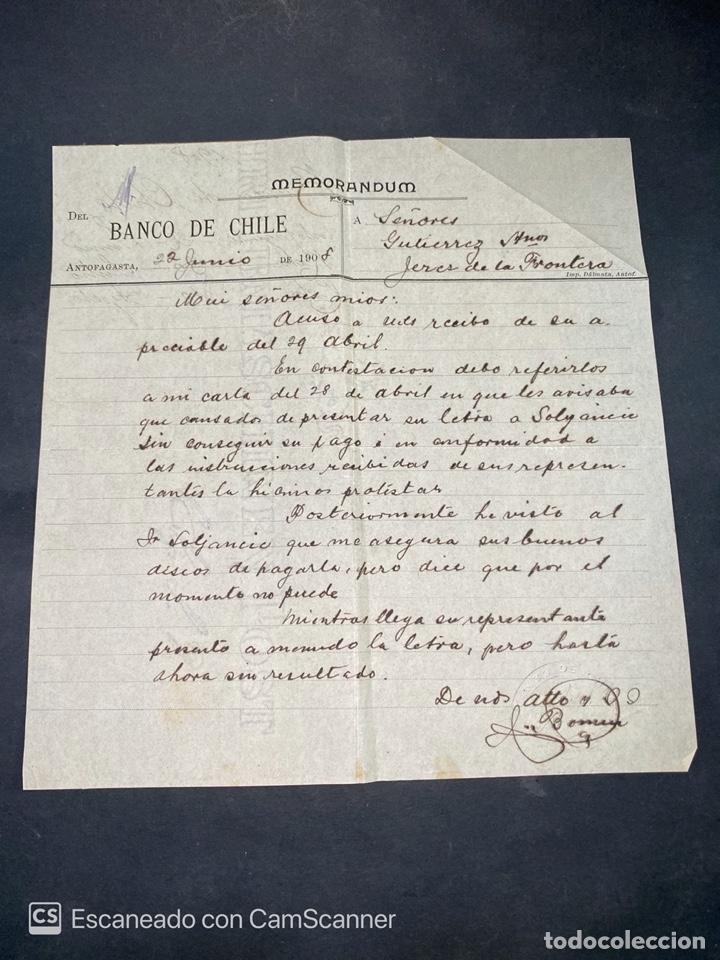 MEMORANDUM
DEL
BANCO DE CHILE
ANTOFAGASTA, 22 Junio DE 1908
A Señores
Gutierrez Hnos
Jerez de la Frontera
Imp. Dálmata, Antof.
Mui señores mios:
Acuso a uds recibo de su a-
preciable del 29 Abril.
En contestacion debo referirlos
a mi carta del 28 de abril en que les avisaba
que cansados de presentar su letra a Soljancic
sin conseguir su pago i en conformidad a
las instrucciones recibidas de sus represen-
tantes la hicimos protestar
Posteriormente he visto al
Sr Soljancic que me asegura sus buenos
deseos de pagarla, pero dice que por el
momento no puede
Mientras llega su representante
presento a menudo la letra, pero hasta
ahora sin resultado.
De uds atto
CS Escaneado con CamScanner
todocoleccion